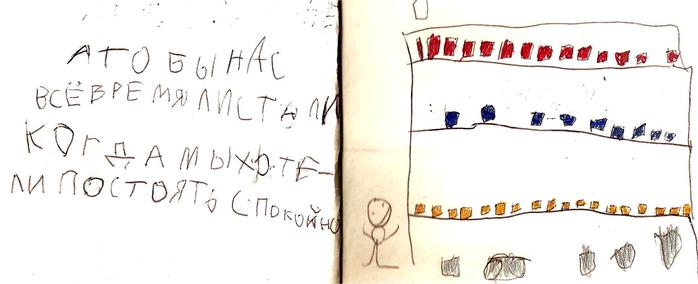 А ТО БЫ НАС
ВСЁ ВРЕМЯ ЛИСТАЛИ
КОГДА МЫ ХОТЕ-
ЛИ ПОСТОЯТЬ СПОКОЙНО